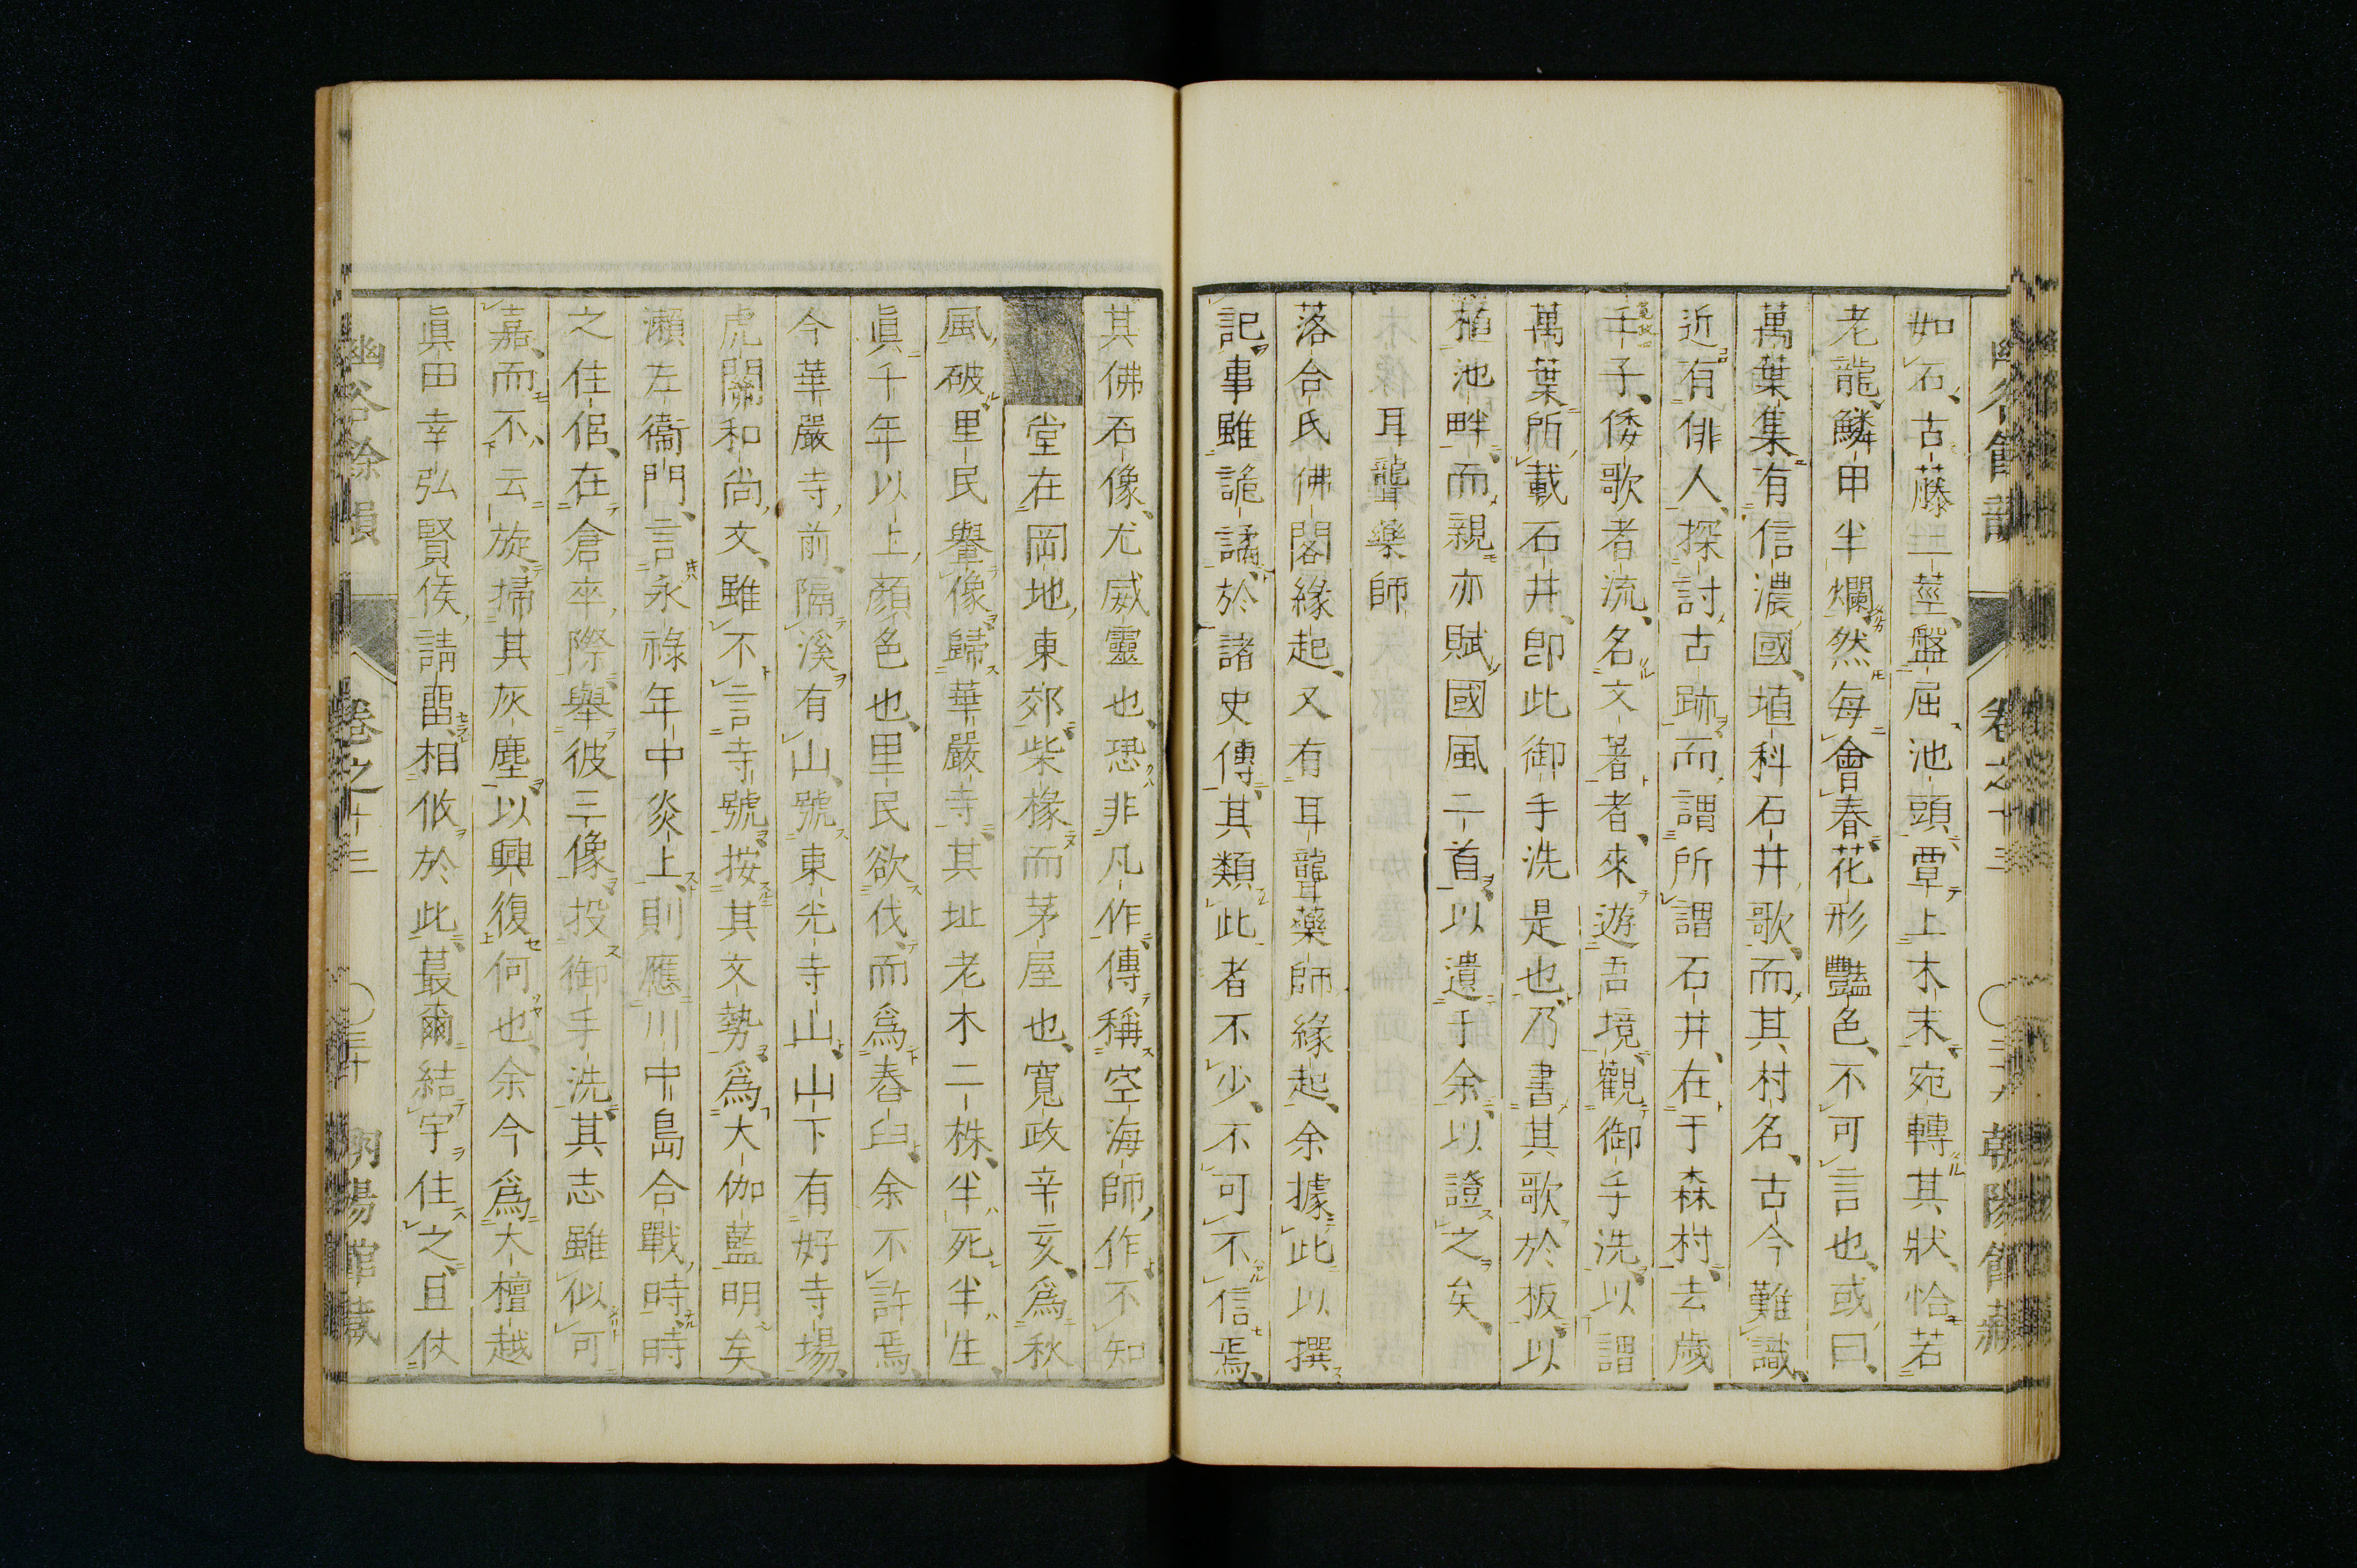 如石、古藤一莖、盤屈池頭、覃上木末、宛轉其狀、恰若
老龍、鱗甲半爛然、每會春花、形豔色、不可言也、或曰、
萬葉集有信濃國、埴科石井歌、而其村名、古今難識、
近有俳人、探討古跡、而謂所謂石井、在于森村、去歲
千子、倭歌者流、名文著者、來遊吾境、觀御手洗、以謂
萬葉所載石井、卽此御手洗是也、乃書其歌於板、以
植池畔、而親亦賦國風二首、以遺于余、以證之矣、
耳聾藥師
落合氏佛閣緣起、又有耳聾藥師緣起、余據此以撰
記、事雖詭譎、於諸史傳、其類此者不少、不可不信焉、
其佛石像、尤威靈也、恐非凡作、傳稱空海師作、不知
堂在岡地、東郊柴椽而茅屋也、寬政辛亥、爲秋
風破、里民轝像歸華嚴寺、其址老木二株、半死半生、
眞千年以上顏色也、里民欲伐而爲舂臼、余不許焉、
今華嚴寺前、隔溪有山、號東光寺山、山下有好寺場、
虎關和尚文、雖不言寺號、按其文勢、爲大伽藍明矣、
瀨左衞門、言永祿年中炎上、則應川中島合戰時、時
之住侶、在倉卒際、舉彼三像、投御手洗、其志雖似可
嘉、而不云旋掃其灰塵、以興復何也、余今爲大檀越
眞田幸弘賢侯、請畱相攸於此、蕞爾結宇住之、且仗
幽谷餘韻 卷之十三 〇三十 朝陽館藏